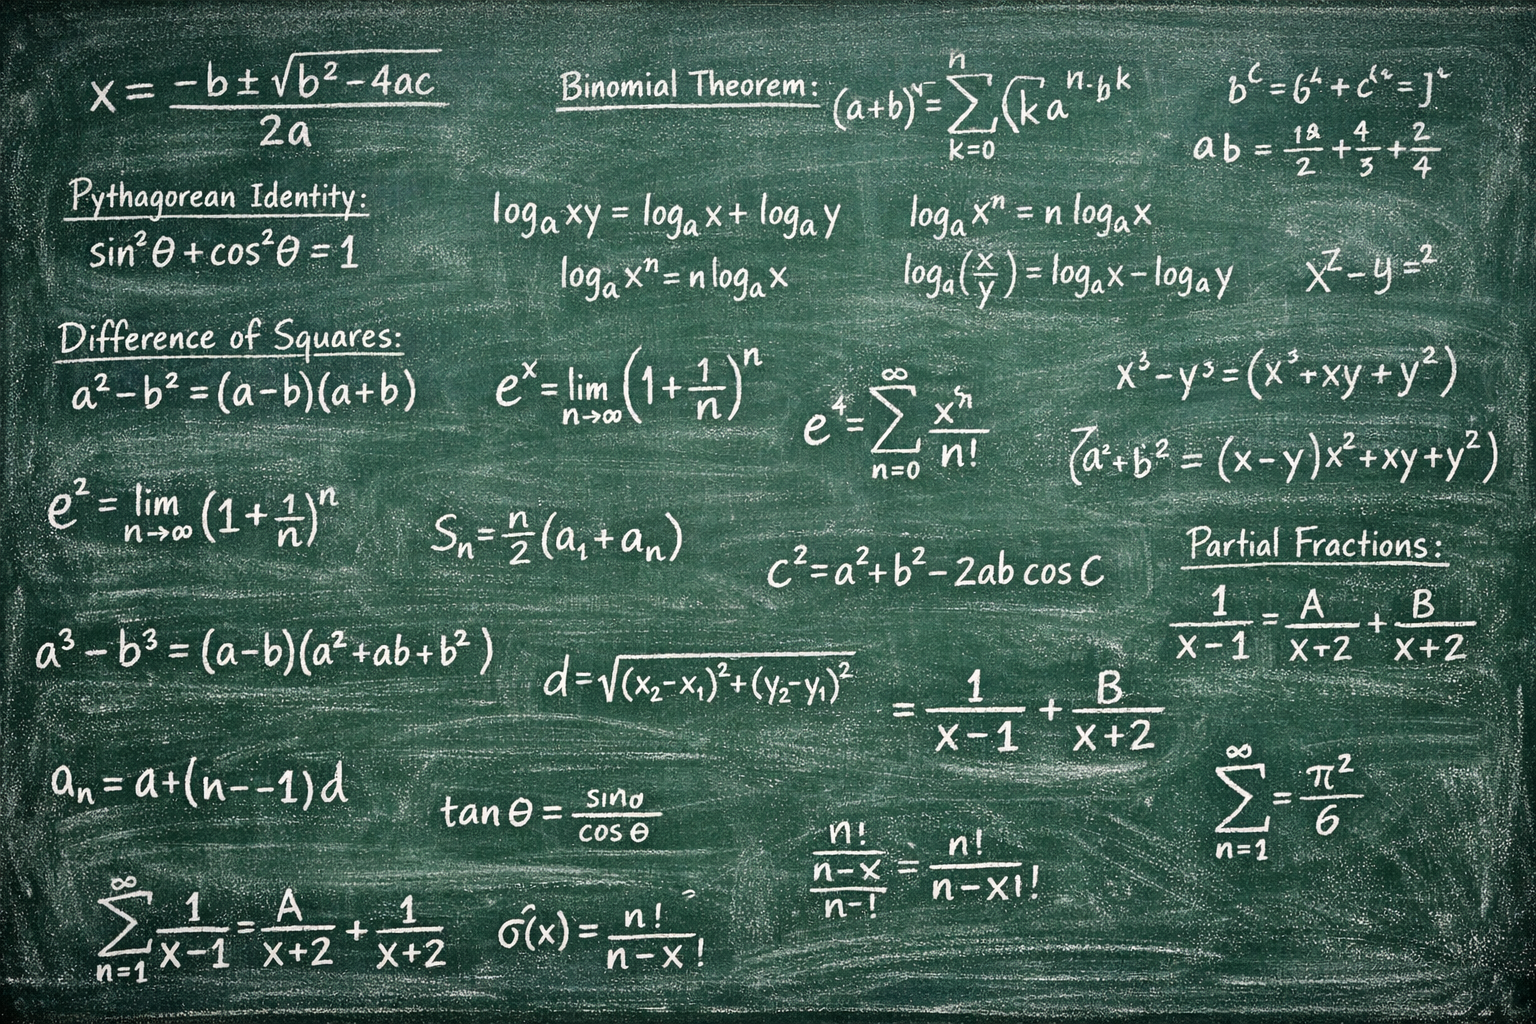 x = (-b ± √(b² - 4ac)) / 2a
Binomial Theorem: (a+b)ⁿ = ∑ k=0 n (k a n-b k
ab = 12/2 + 4/3 + 2/4
Pythagorean Identity:
sin²θ + cos²θ = 1
logₐ xy = logₐ x + logₐ y
logₐ xⁿ = n logₐ x
logₐ xⁿ = n logₐ x
logₐ(x/y) = logₐ x - logₐ y
x² - y =²
Difference of Squares:
a² - b² = (a-b)(a+b)
eˣ = lim n→∞ (1 + 1/n)ⁿ
e⁴ = ∑ n=0 ∞ xⁿ/n!
x³ - y³ = (x³ + xy + y²)
(a² + b² = (x-y)x² + xy + y²)
e² = lim n→∞ (1 + 1/n)ⁿ
Sₙ = n/2 (a₁ + aₙ)
c² = a² + b² - 2ab cos C
Partial Fractions:
1/(x-1) = A/(x+2) + B/(x+2)
a³ - b³ = (a-b)(a² + ab + b²)
d = √((x₂-x₁)² + (y₂-y₁)²)
= 1/(x-1) + B/(x+2)
aₙ = a + (n--1)d
tan θ = sinσ / cos θ
∑ n=1 ∞ = π²/6
n!/(n-x)/n-! = n!/(n-x!!)
∑ n=1 ∞ 1/(x-1) = A/(x+2) + 1/(x+2)
σ(x) = n!/(n-x!)